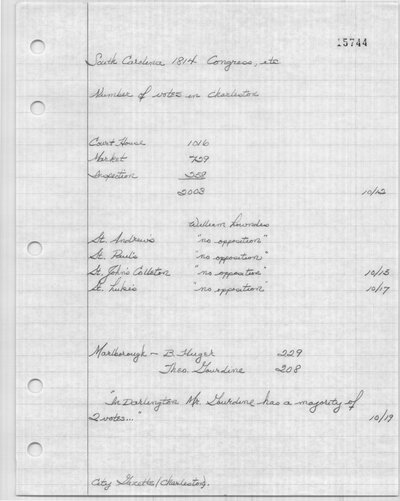 15744
South Carolina 1814 Congress, etc
Number of votes in Charleston
Court House 1016
Market 729
Inspection 258
2003 10/12
William Lowndes
St. Andrews "no opposition"
St. Paul's "no opposition"
St. John's Colleton "no opposition" 10/15
St. Luke's "no opposition" 10/17
Marlborough - B. Huger 229
Theo. Gourdine 208
"In Darlington Mr. Gourdine has a majority of
2 votes..." 10/19
City Gazette (Charleston).